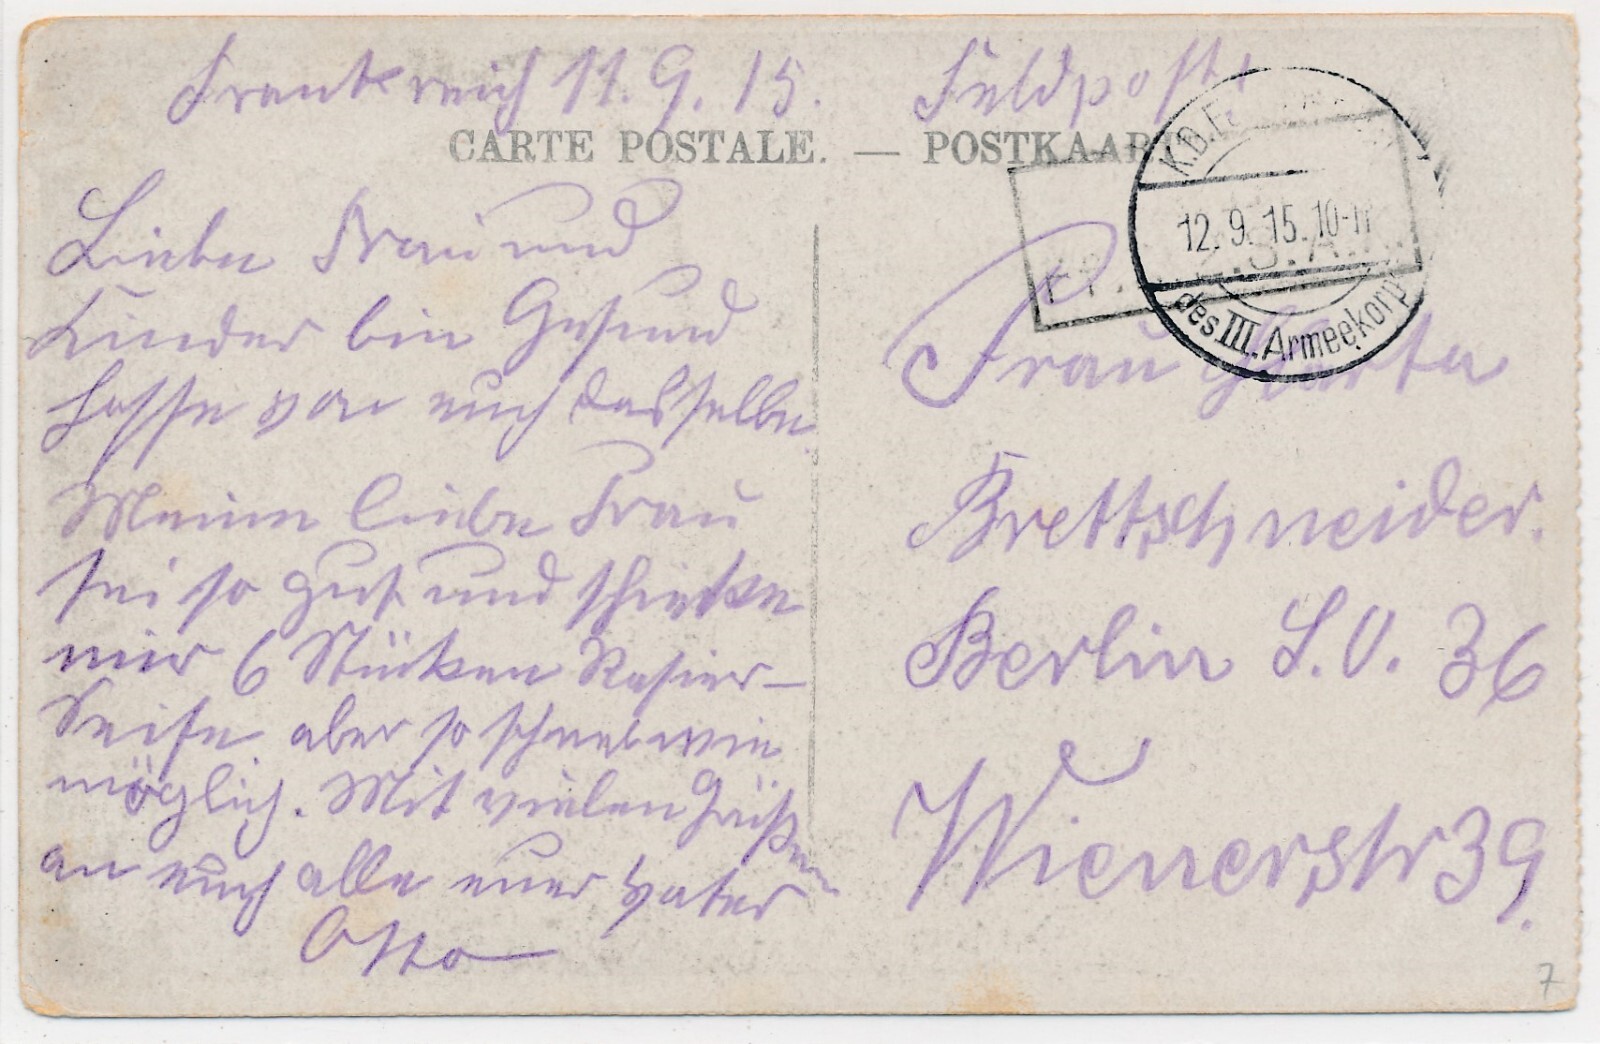 Frankreich 11.9.15. Feldpost
CARTE POSTALE. — POSTKAART
K.D.F
12.9.15.10-11
des III. Armeekorps
Liebe Frau und
Kinder bin Gesund
hoffe von euch dasselbe.
Meine liebe Frau
sei so gut und schicke
mir 6 Stücken Rasier-
Seife aber so schnell wie
möglich. Mit vielen Grüßen
an euch alle euer Vater
Otto
Frau
Brettschneider.
Berlin S.O. 36
Wienerstr 39.
7